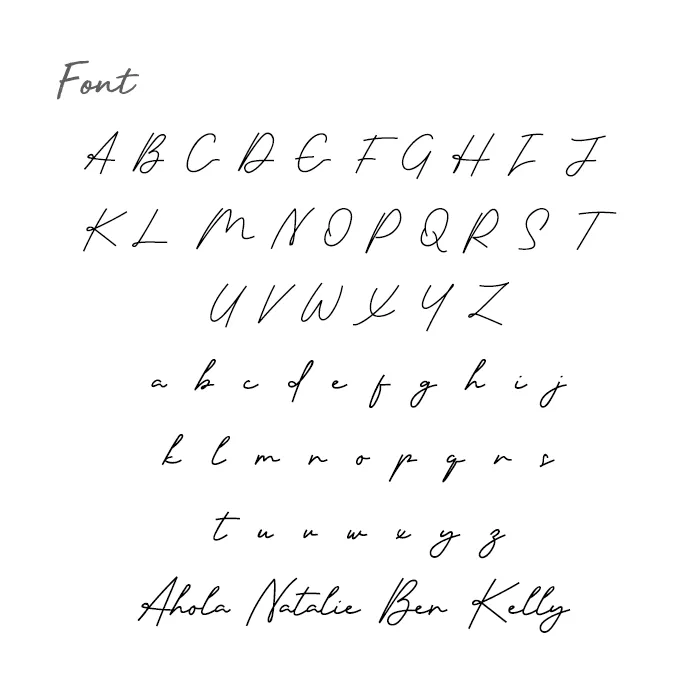 Font
A B C D E F G H I J
K L M N O P Q R S T
U V W X Y Z
a b c d e f g h i j
k l m n o p q r s
t u v w x y z
Ahola Natalie Ben Kelly